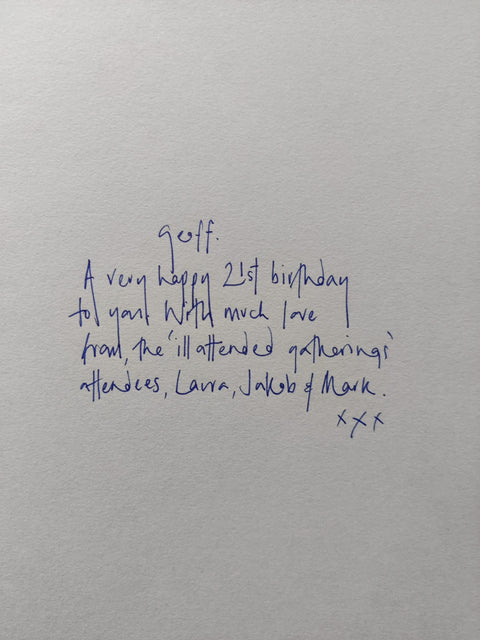 Geoff.
A very happy 21st birthday
to you! With much love
from, the 'ill attended gatherings'
attendees, Laura, Jakob & Mark.
xxx